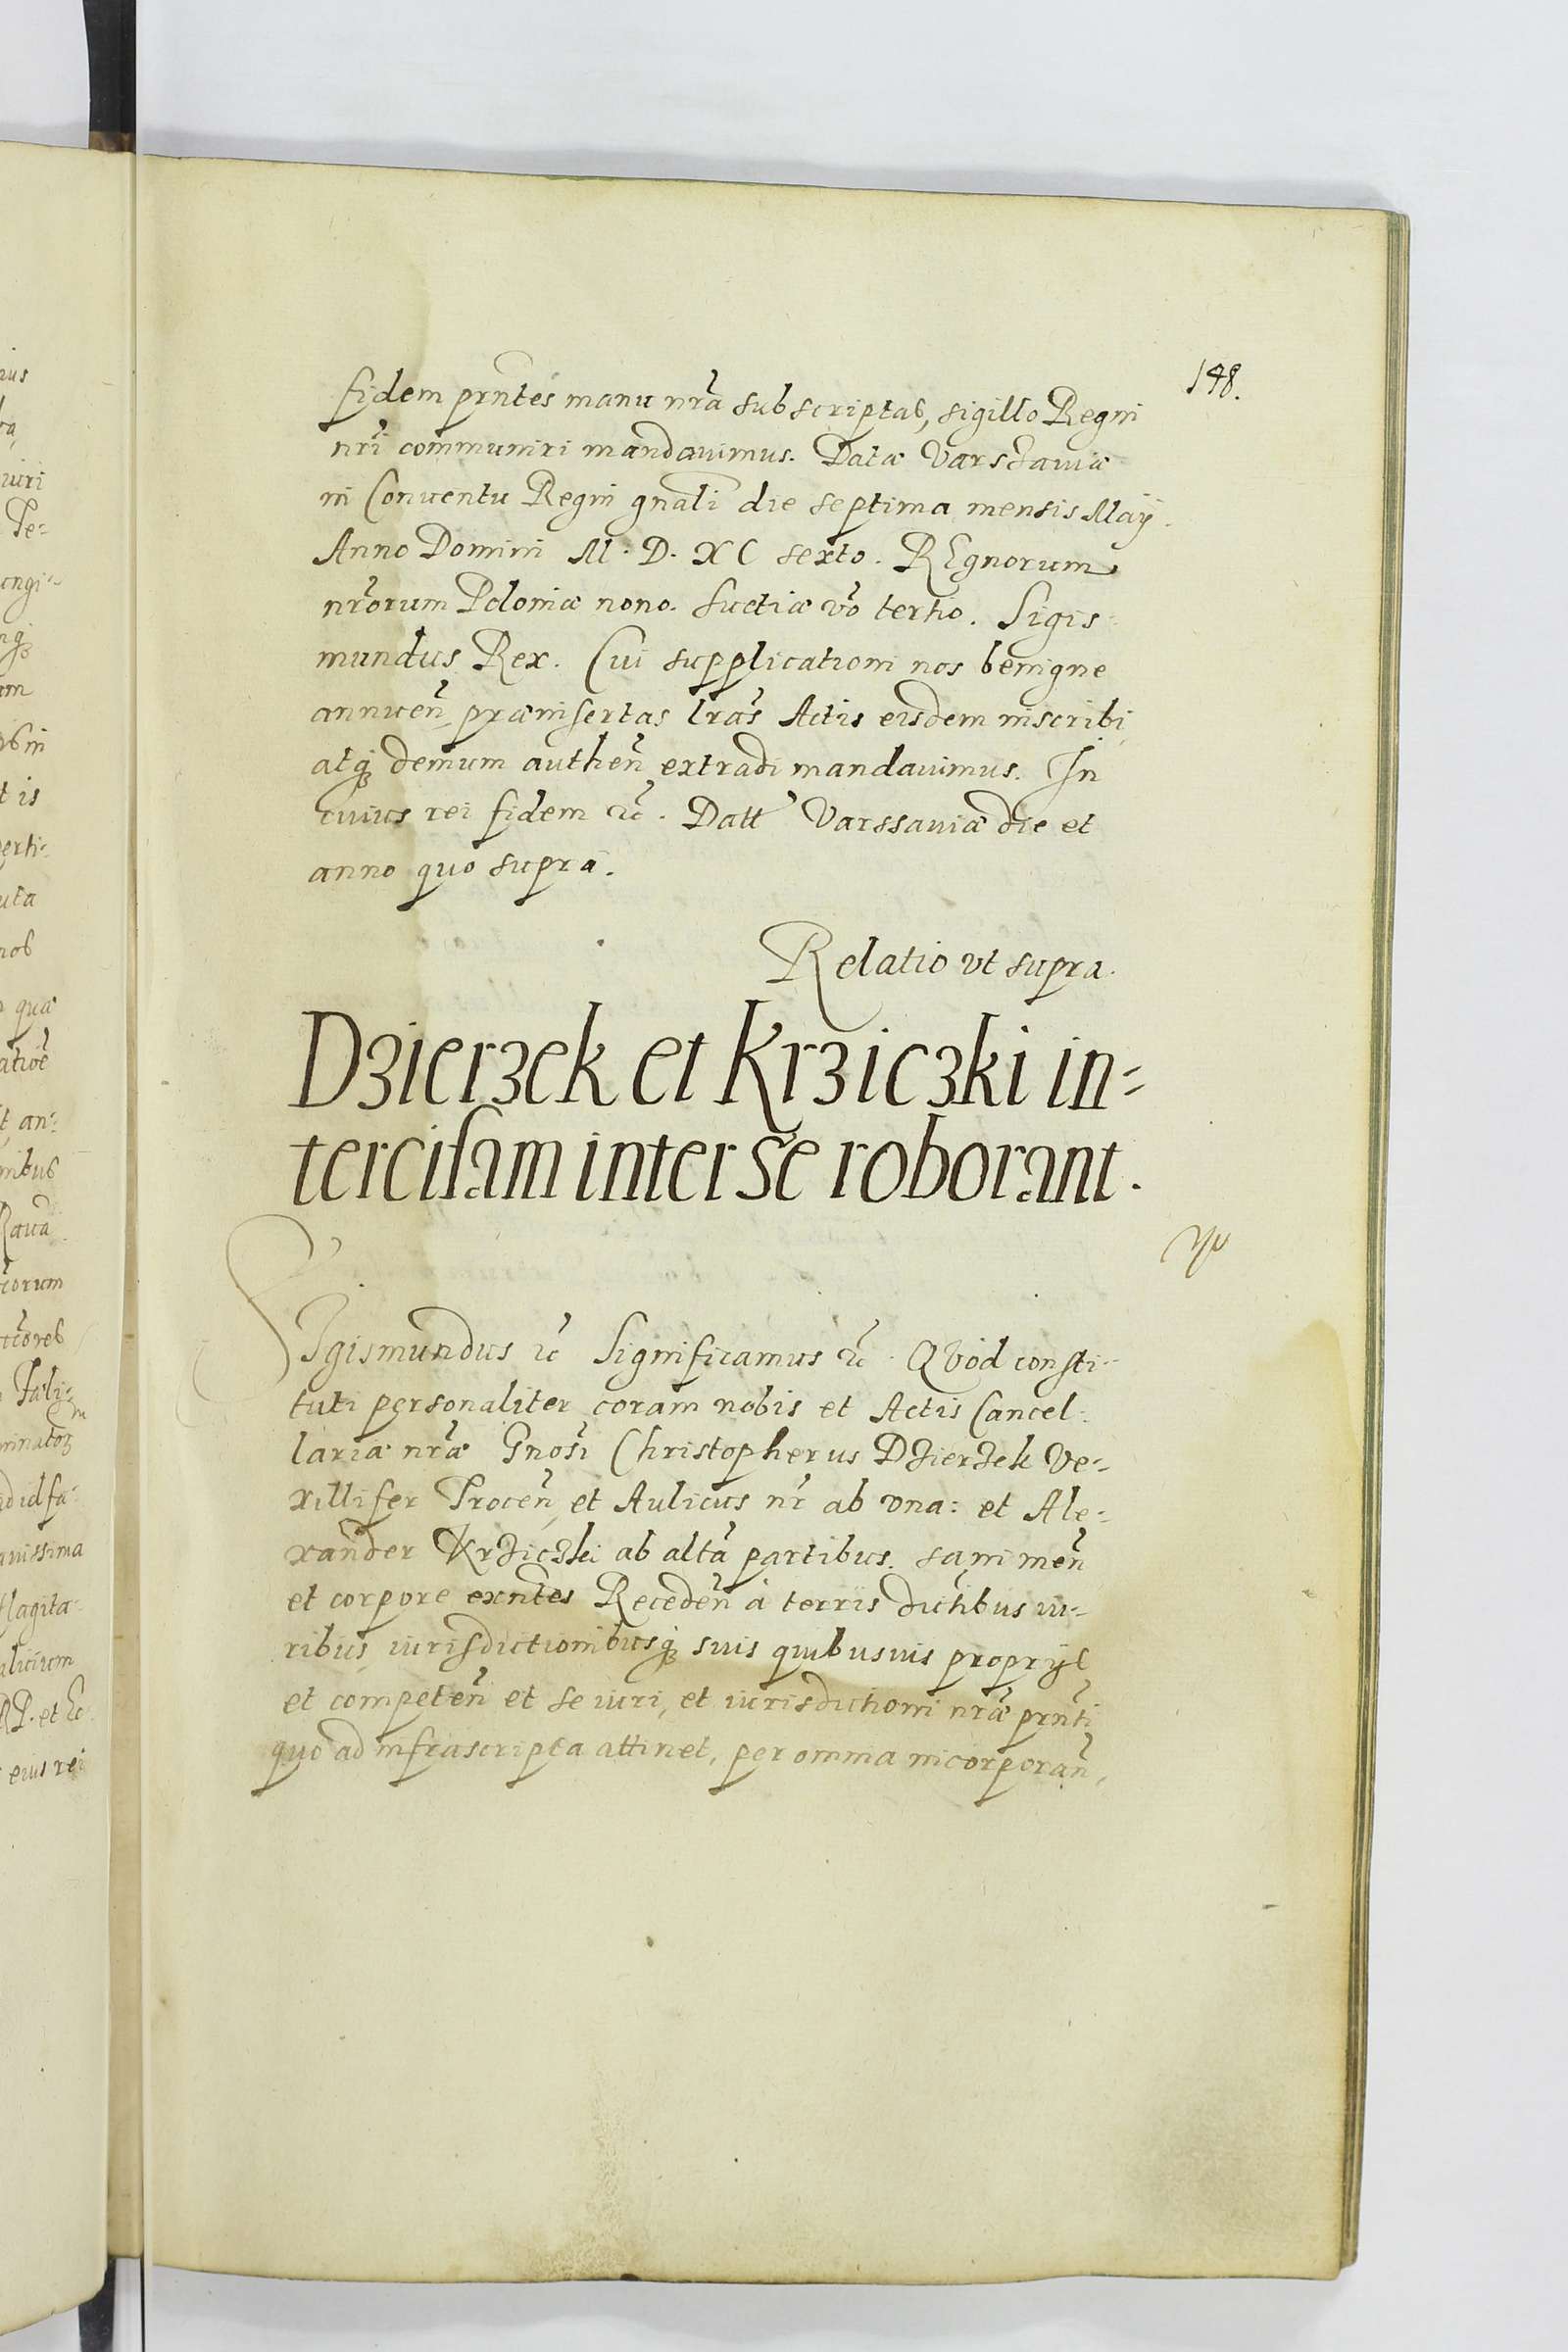 148.
fidem prntes manu nra subscriptas, sigillo Regni
nri communiri mandauimus. Datæ Varschauiæ
in Conuentu Regni gnali die septima mensis Maÿ
Anno Domini M. D. XC sexto. REgnorum
nrorum Poloniæ nono. Suetiæ vo tertio. Sigis-
mundus Rex. Cui supplicationi nos benigne
annuen, præinsertas lras Actis eisdem inscribi
atq demum authen extradi mandauimus. In
cuius rei fidem etc. Datt Varssauiæ die et
anno quo supra.
Relatio vt supra.
Dzierzek et Krziczki in=
tercisam inter se roborant.
SIgismundus etc Significamus etc. QVod consti-
tuti personaliter coram nobis et Actis Cancel-
lariæ nræ Gnosi Christopherus Dzierzek Ve-
xillifer Trocen, et Aulicus nr ab vna: et Ale-
xander Krziczki ab alta partibus. sani men
et corpore exntes Receden à terris dictibus iu-
ribus, iurisdictionibusq suis quibusuis proprÿs
et competen et se iuri, et iurisdictioni nræ prnti
quo ad infrascripta attinet, per omnia incorporan,